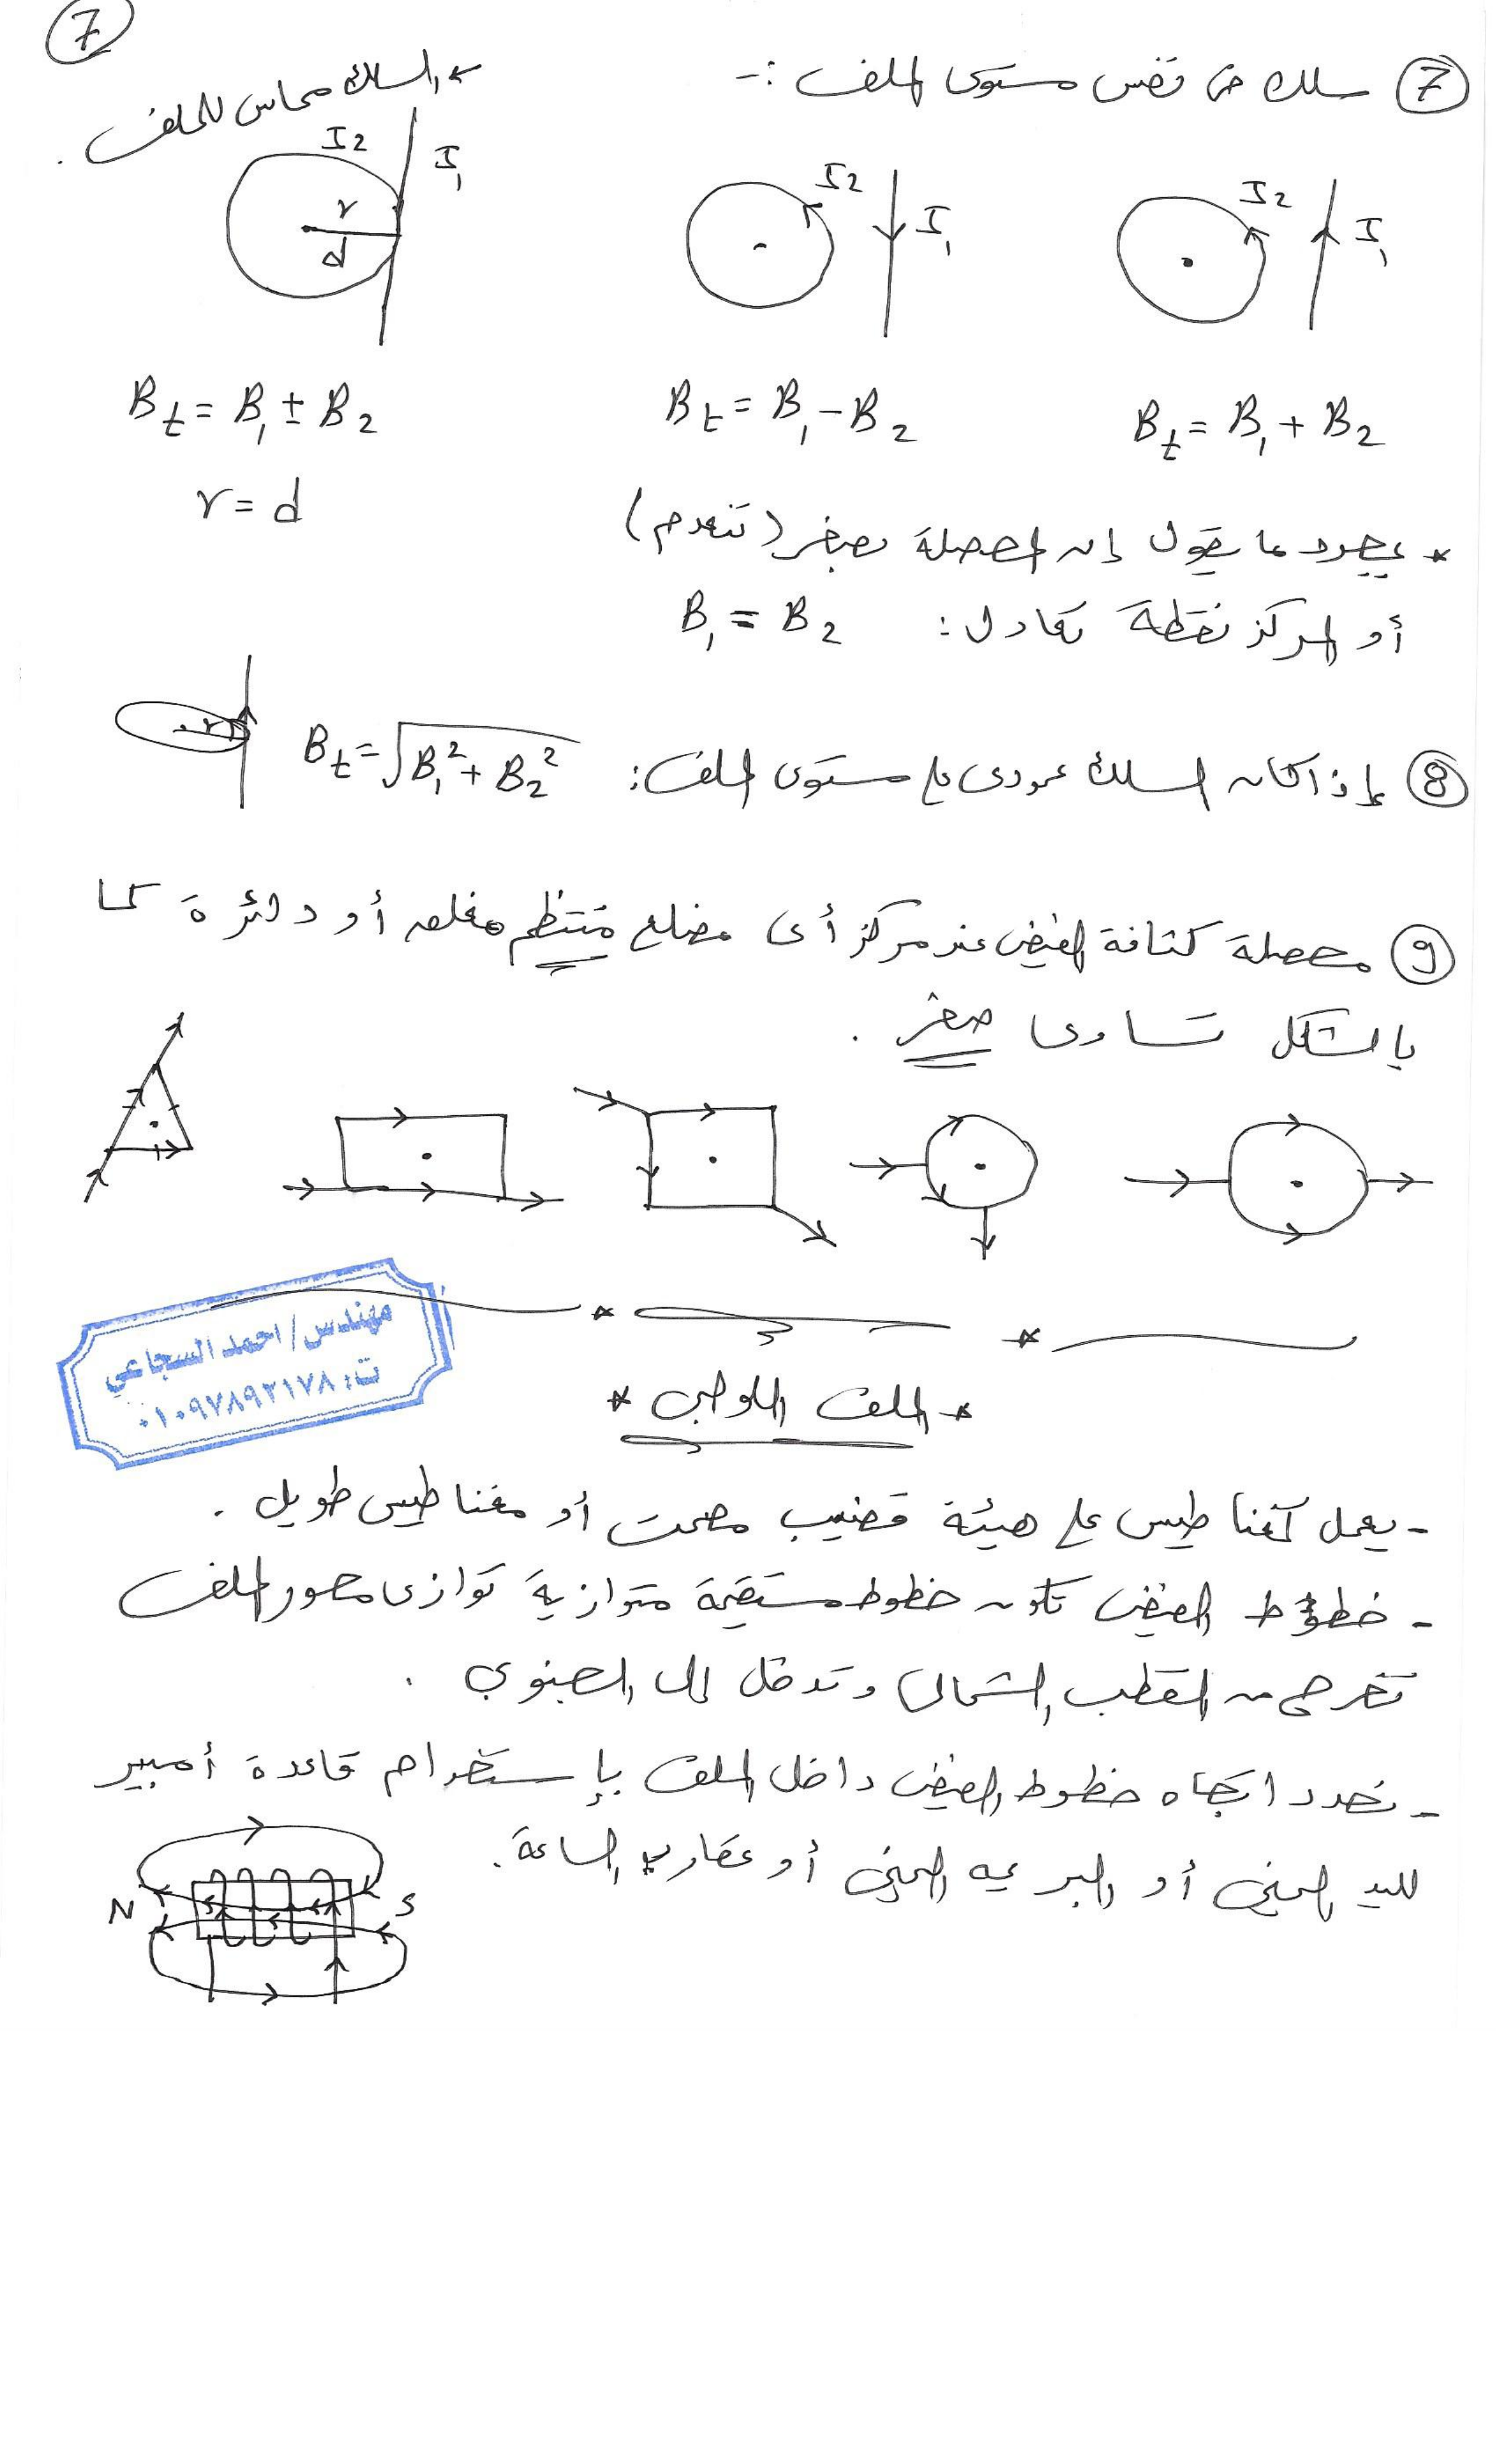 7
7 سلك فى نفس مستوى الملف :-
← السلك مماس للملف .
I2 I1
I2 I1
I2 I1
r
d
Bt = B1 + B2
Bt = B1 - B2
Bt = B1 ± B2
r = d
* بمجرد ما يقول إن المحصلة بصفر (تنعدم)
أو المركز نقطة تعادل : B1 = B2
8 إذا كان السلك عمودى على مستوى الملف : Bt = √B1² + B2²
r
9 محصلة كثافة الفيض عند مركز أى مضلع منتظم مغلق أو دائرة كما
بالشكل تساوى صفر .
مهندس/احمد السجاعي
ت: ٠١٠٩٧٨٩٢١٧٨
* الملف اللولبى *
- يعمل كمغناطيس على هيئة قضيب مصمت أو مغناطيس طويل .
- خطوط الفيض تكون خطوط مستقيمة متوازية توازى محور الملف
تخرج من القطب الشمالى وتدخل إلى الجنوبي .
- نحدد اتجاه خطوط الفيض داخل الملف بإستخدام قاعدة أمبير
لليد اليمنى أو البريمه اليمنى أو عقارب الساعة .
N S